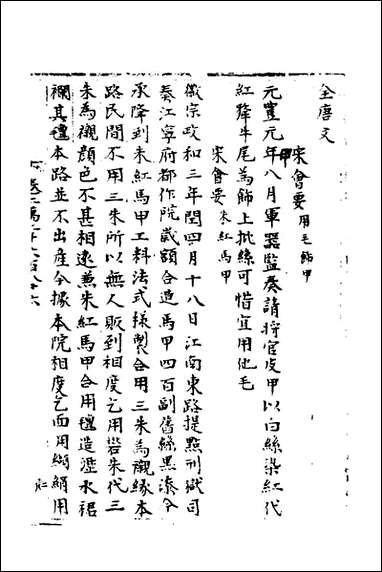 全唐文
宋會要 用毛飾甲
甲
元豐元年八月軍器監奏請將官皮甲以白絲染紅代
紅犛牛尾為飾上批絲可惜宜用他毛
宋會要 朱紅馬甲
徽宗政和三年閏四月十八日江南東路提點刑獄司
奏江寧府都作院歲額合造馬甲四百副舊係黑漆今
承降到朱紅馬甲工料法式樣製合用三朱為襯緣本
路民間不用三朱所以無人販到相度乞用礬朱代三
朱為襯顏色不甚相遠兼朱紅馬甲合用氊造漄水裙
襴其氊本路並不出產今據本院相度乞面用絹用